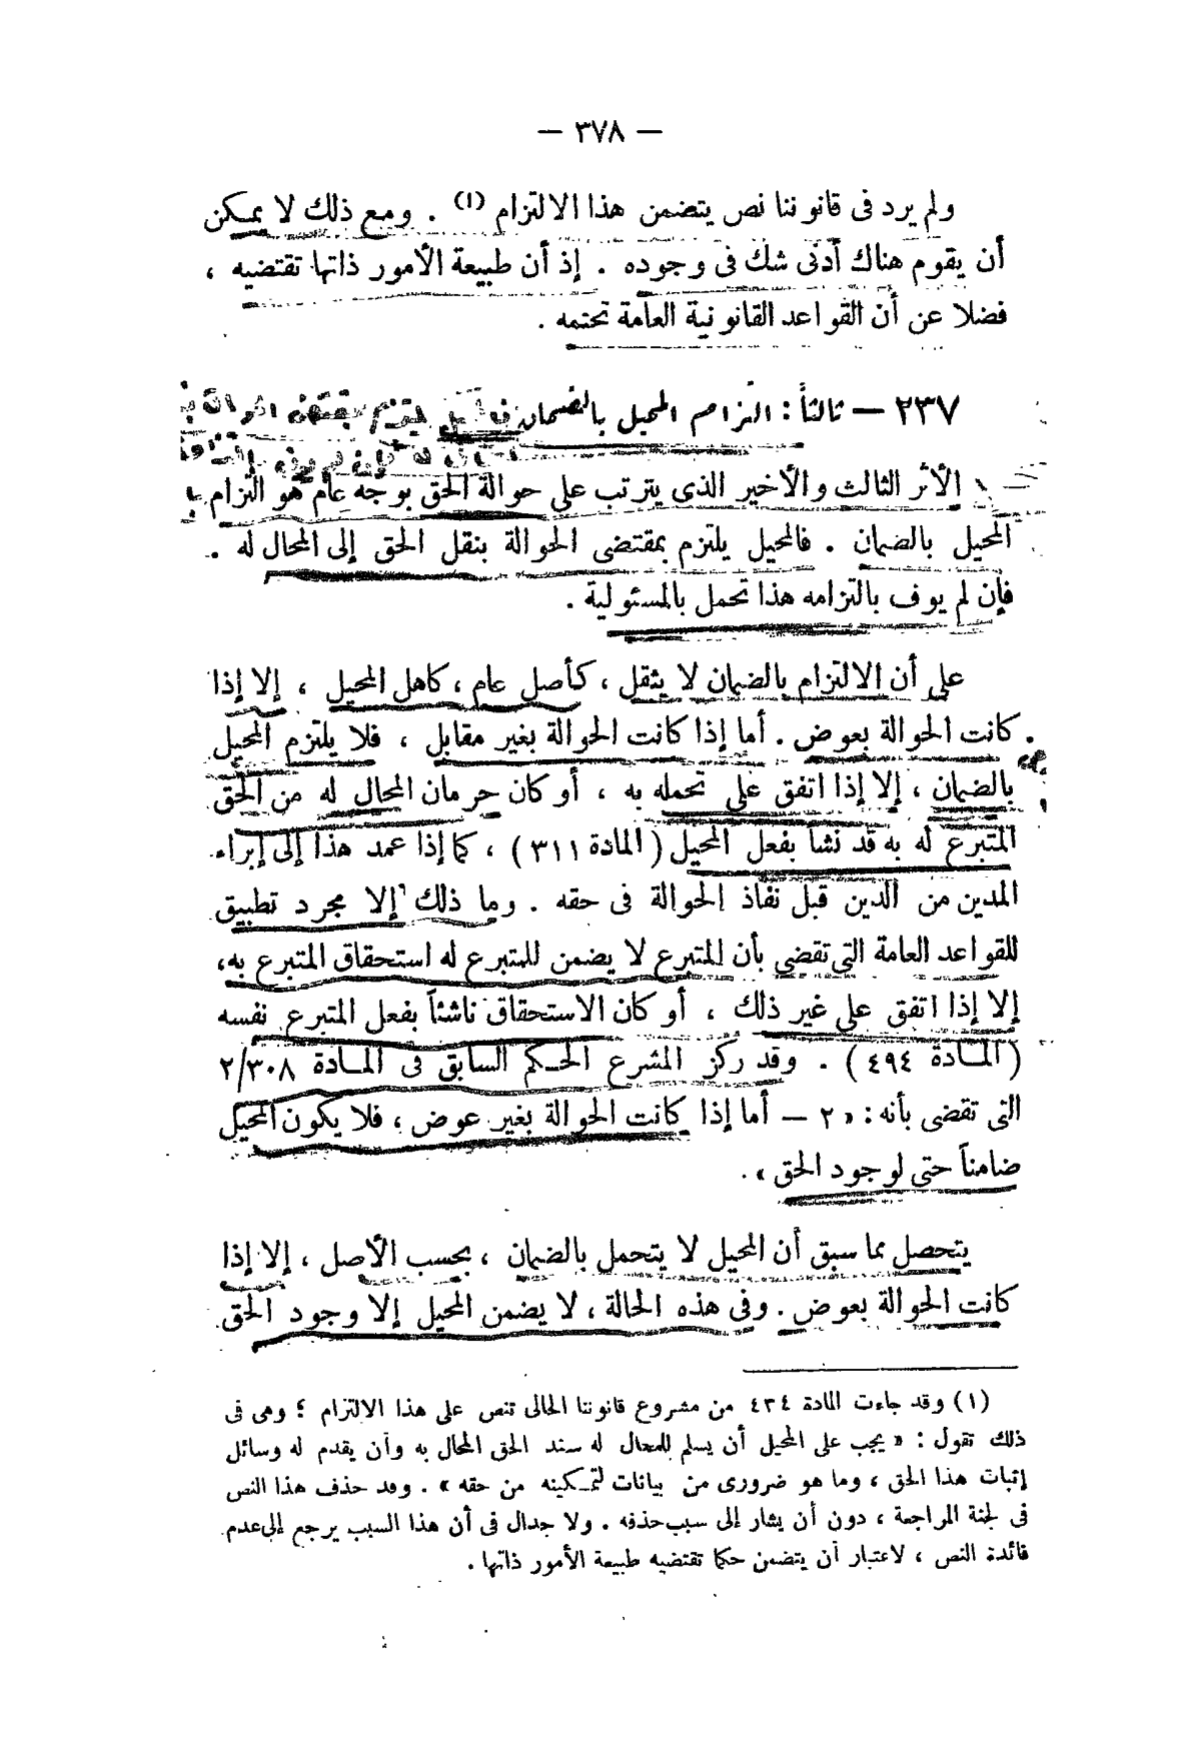 — ٣٧٨ —
ولم يرد فى قانوننا نص يتضمن هذا الالتزام (١) . ومع ذلك لا يمكن
أن يقوم هناك أدنى شك فى وجوده . إذ أن طبيعة الأمور ذاتها تقتضيه ،
فضلا عن أن القواعد القانونية العامة تحتمه .
٢٣٧ — ثالثاً : التزام المحيل بالضمان
الأثر الثالث والأخير الذى يترتب على حوالة الحق بوجه عام هو التزام
المحيل بالضمان . فالمحيل يلتزم بمقتضى الحوالة بنقل الحق إلى المحال له .
فإن لم يوف بالتزامه هذا تحمل بالمسئولية .
على أن الالتزام بالضمان لا يثقل ، كأصل عام ، كاهل المحيل ، إلا إذا
كانت الحوالة بعوض . أما إذا كانت الحوالة بغير مقابل ، فلا يلتزم المحيل
بالضمان ، إلا إذا اتفق على تحمله به ، أو كان حرمان المحال له من الحق
المتبرع له به قد نشأ بفعل المحيل ( المادة ٣١١ ) ، كما إذا عمد هذا إلى إبراء
المدين من الدين قبل نفاذ الحوالة فى حقه . وما ذلك إلا مجرد تطبيق
للقواعد العامة التى تقضى بأن المتبرع لا يضمن للمتبرع له استحقاق المتبرع به،
إلا إذا اتفق على غير ذلك ، أو كان الاستحقاق ناشئاً بفعل المتبرع نفسه
( المــادة ٤٩٤ ) . وقد ركز المشرع الحــكم السابق فى المــادة ٢/٣٠٨
التى تقضى بأنه : « ٢ — أما إذا كانت الحوالة بغير عوض ، فلا يكون المحيل
ضامناً حتى لوجود الحق » .
يتحصل مما سبق أن المحيل لا يتحمل بالضمان ، بحسب الأصل ، إلا إذا
كانت الحوالة بعوض . وفى هذه الحالة ، لا يضمن المحيل إلا وجود الحق
(١) وقد جاءت المادة ٤٣٤ من مشروع قانوننا الحالى تنص على هذا الالتزام ؛ وهى فى
ذلك تقول : « يجب على المحيل أن يسلم للمحال له سند الحق المحال به وأن يقدم له وسائل
إثبات هذا الحق ، وما هو ضرورى من بيانات لتمــكينه من حقه » . وقد حذف هذا النص
فى لجنة المراجعة ، دون أن يشار إلى سبب حذفه . ولا جدال فى أن هذا السبب يرجع إلى عدم
فائدة النص ، لاعتبار أن يتضمن حكما تقتضيه طبيعة الأمور ذاتها .